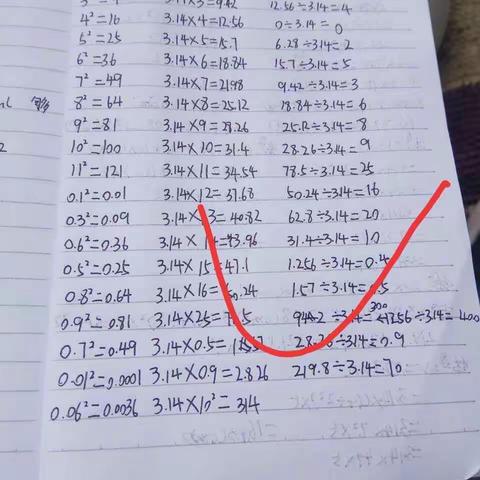 3.14×3=9.42 12.56÷3.14=4
4²=16 3.14×4=12.56 0÷3.14=0
5²=25 3.14×5=15.7 6.28÷3.14=2
6²=36 3.14×6=18.84 15.7÷3.14=5
7²=49 3.14×7=21.98 9.42÷3.14=3
8²=64 3.14×8=25.12 18.84÷3.14=6
9²=81 3.14×9=28.26 25.12÷3.14=8
10²=100 3.14×10=31.4 28.26÷3.14=9
11²=121 3.14×11=34.54 78.5÷3.14=25
0.1²=0.01 3.14×12=37.68 50.24÷3.14=16
0.3²=0.09 3.14×13=40.82 62.8÷3.14=20
0.6²=0.36 3.14×14=43.96 31.4÷3.14=10
0.5²=0.25 3.14×15=47.1 1.256÷3.14=0.4
0.8²=0.64 3.14×16=50.24 1.57÷3.14=0.5
0.9²=0.81 3.14×25=78.5 942÷3.14=300 1256÷3.14=400
0.7²=0.49 3.14×0.5=1.57 28.26÷3.14=0.9
0.01²=0.0001 3.14×0.9=2.826 219.8÷3.14=70
0.06²=0.0036 3.14×10²=314